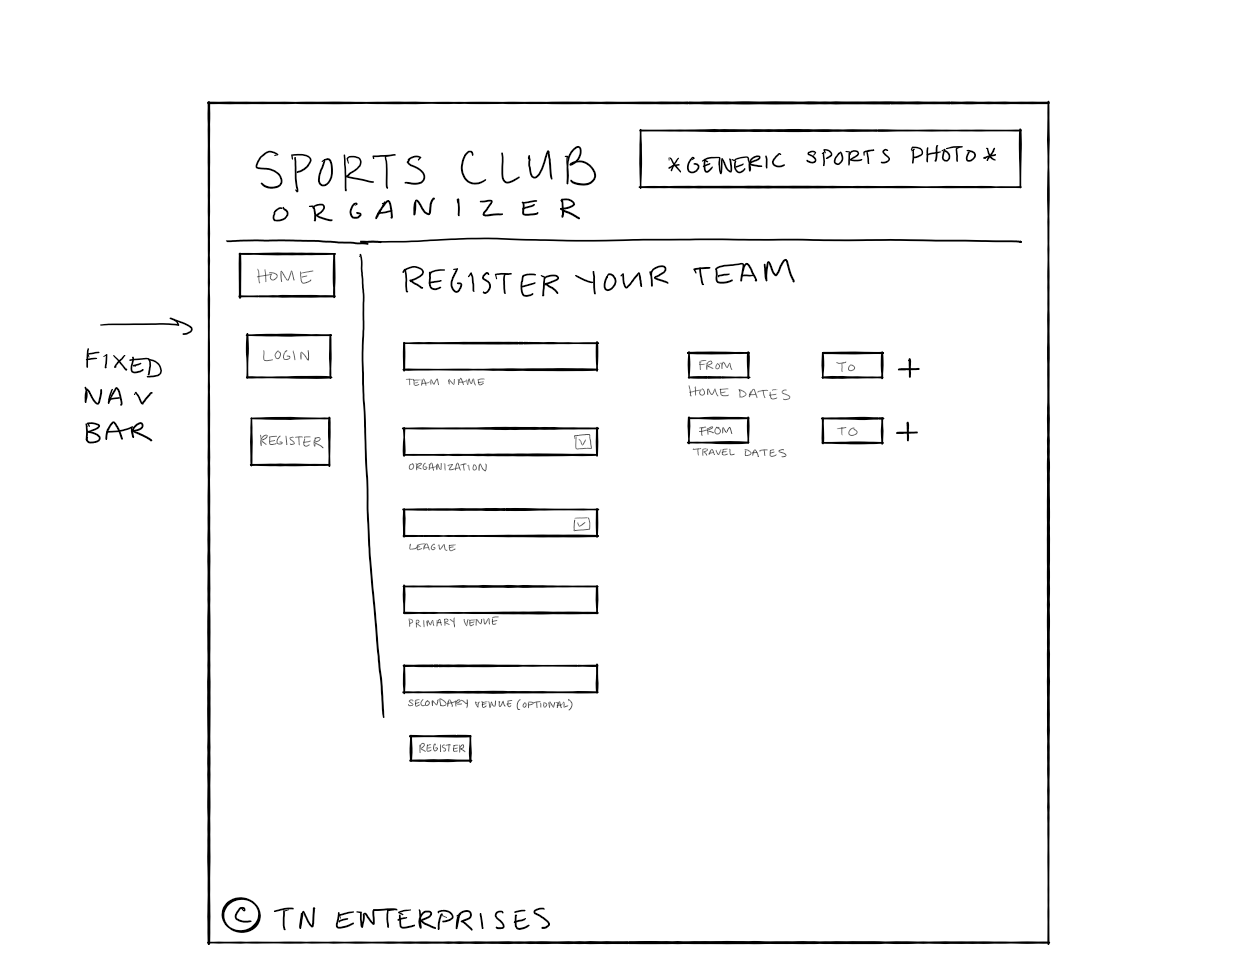 SPORTS CLUB
ORGANIZER
*GENERIC SPORTS PHOTO*
HOME
LOGIN
REGISTER
FIXED
NAV
BAR
REGISTER YOUR TEAM
TEAM NAME
ORGANIZATION
LEAGUE
PRIMARY VENUE
SECONDARY VENUE (OPTIONAL)
REGISTER
FROM TO +
HOME DATES
FROM TO +
TRAVEL DATES
© TN ENTERPRISES